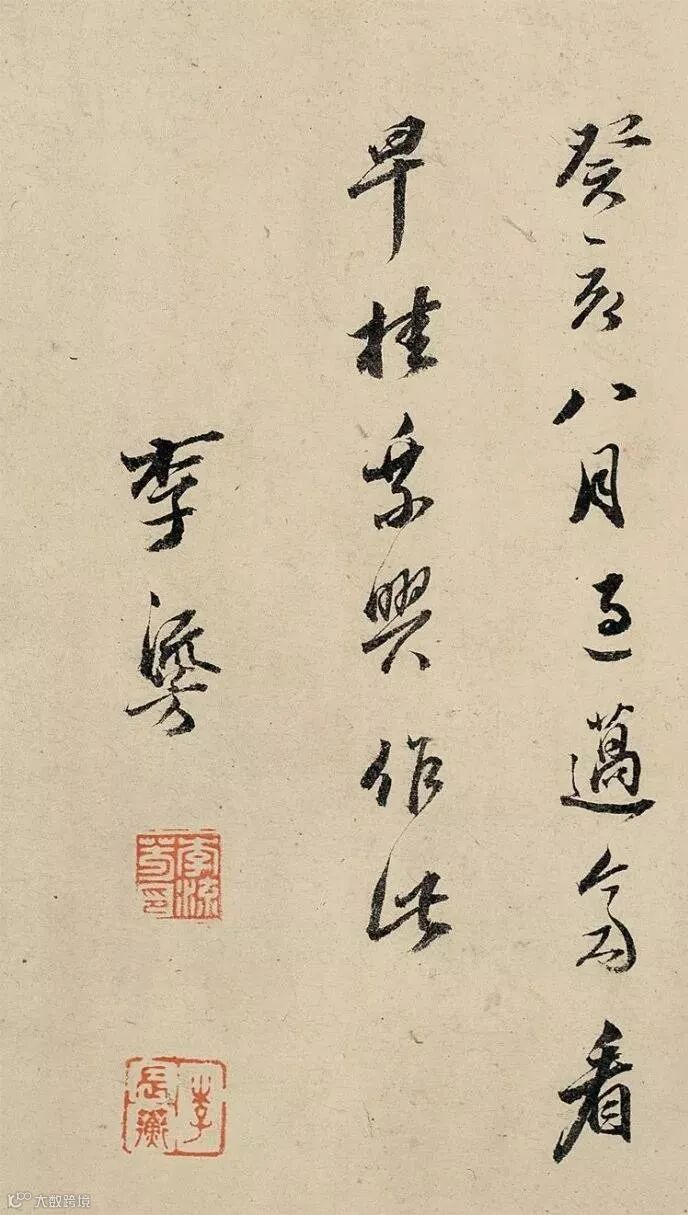 癸亥八月過邁看
早桂乘興作此
李流芳
李流芳印
李長蘅
大数跨境